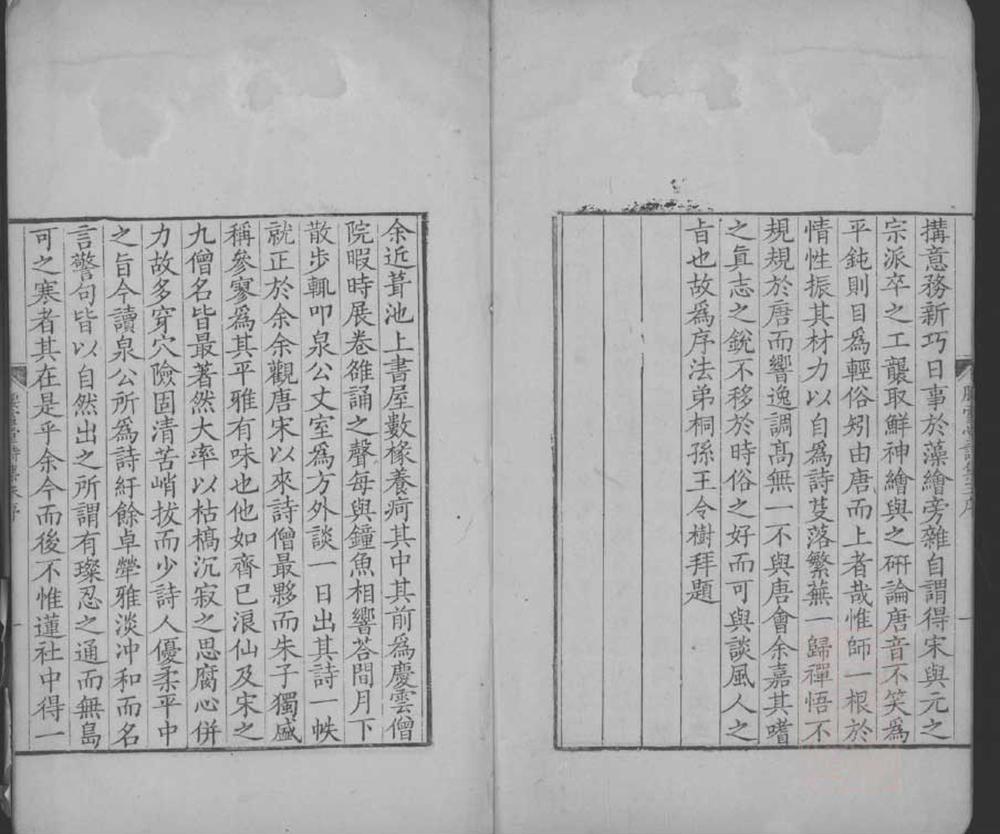 搆意務新巧日事於藻繪旁雜自謂得宋與元之
宗派卒之工襲取鮮神繪與之硏論唐音不笑爲
平鈍則目爲輕俗矧由唐而上者哉惟師一根於
情性振其材力以自爲詩芟落繁蕪一歸禪悟不
規規於唐而響逸調髙無一不與唐會余嘉其嗜
之眞志之銳不移於時俗之好而可與談風人之
旨也故爲序法弟桐孫王令樹拜題
一
余近葺池上書屋數椽養疴其中其前爲慶雲僧
院暇時展卷雒誦之聲每與鐘魚相響荅間月下
散步輒叩泉公丈室爲方外談一日出其詩一帙
就正於余余觀唐宋以來詩僧最夥而朱子獨盛
稱參寥爲其平雅有味也他如齊已浪仙及宋之
九僧名皆最著然大率以枯槁沉寂之思腐心併
力故多穿穴險固清苦峭拔而少詩人優柔平中
之旨今讀泉公所爲詩紆餘卓犖雅淡冲和而名
言警句皆以自然出之所謂有璨忍之通而無島
可之寒者其在是乎余今而後不惟蓮社中得一
一